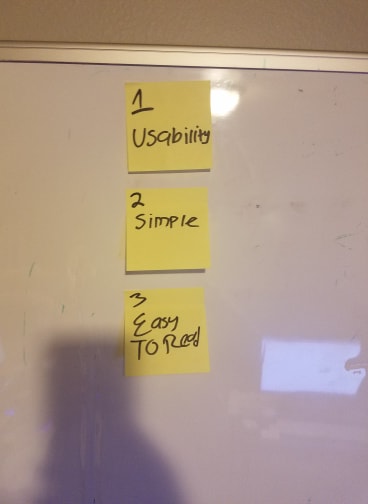 1
Usability
2
Simple
3
Easy
TO Read